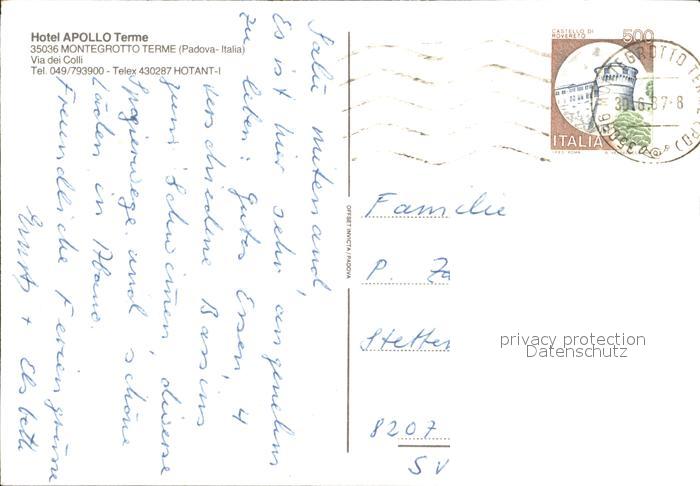 Hotel APOLLO Terme
35036 MONTEGROTTO TERME (Padova- Italia)
Via dei Colli
Tel. 049/793900 - Telex 430287 HOTANT-I
Salü mitenand,
Es ist hier sehr angenehm
zu leben: Gutes Essen, 4
verschiedene Bassins
zum Schwimmen, diverse
Spazierwege und schöne
Läden in Abano.
Freundliche Feriengrüsse
Ernst + Elsbeth
OFFSET INVICTA / PADOVA
CASTELLO DI
ROVERETO
500
ITALIA
30.6.87-8
Familie
P. Zo
Stetten
8207
SV
privacy protection
Datenschutz